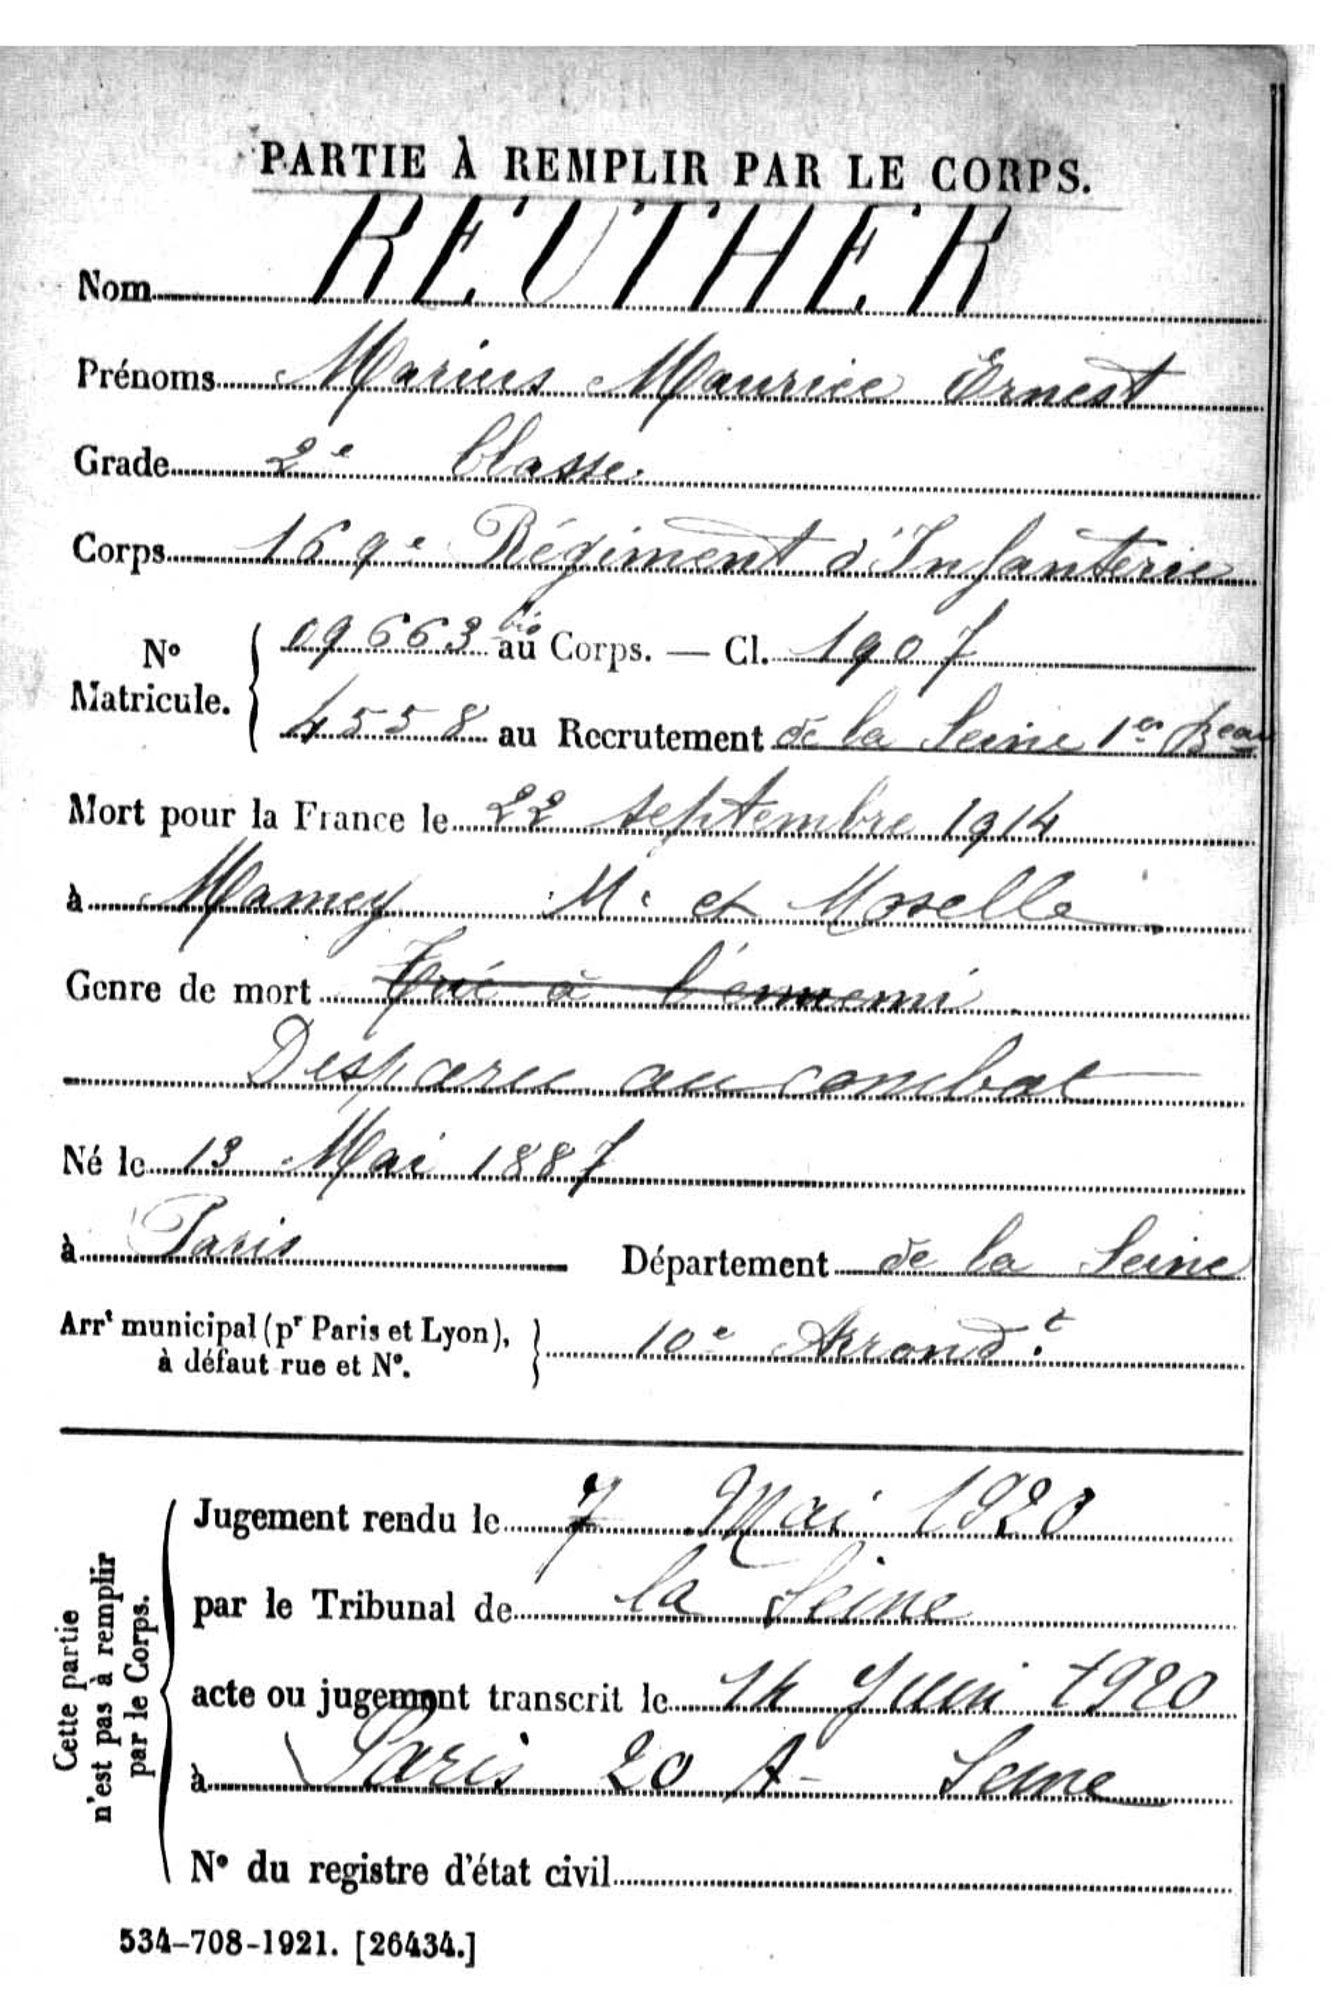 PARTIE À REMPLIR PAR LE CORPS.
Nom REUTHER
Prénoms Marius Maurice Ernest
Grade 2e Classe
Corps 169e Régiment d'Infanterie
No Matricule. { 09663 bis au Corps. — Cl. 1907
4558 au Recrutement de la Seine 1er Beau
Mort pour la France le 22 septembre 1914
à Mamey M. et Moselle
Genre de mort Tué à l'ennemi
Disparu au combat
Né le 13 Mai 1887
à Paris Département de la Seine
Arrt municipal (pr Paris et Lyon), à défaut rue et No. } 10e Arrond.t
Cette partie n'est pas à remplir par le Corps.
Jugement rendu le 7 Mai 1920
par le Tribunal de la Seine
acte ou jugement transcrit le 14 Juin 1920
à Paris 20 A- Seine
No du registre d'état civil
534-708-1921. [26434.]